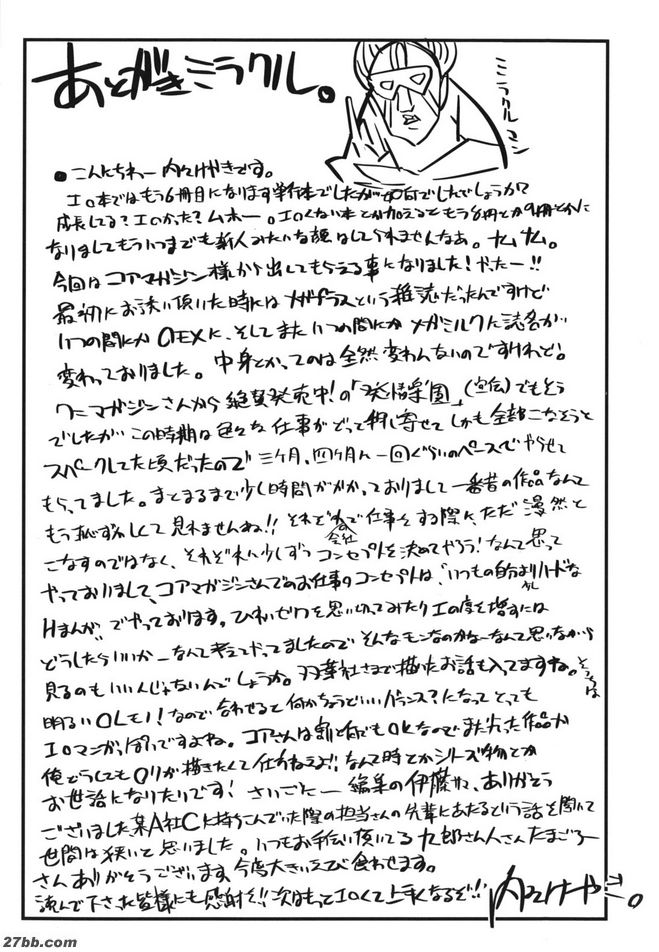 あとがきミラクル。
ミラクルマン
●こんにちわー 内々けやきです。
エロ本ではもう6冊目になります単行本でしたが如何でしたでしょうか?
成長してる?エロかった?ムホー。エロくない本とか加えるともう8冊とか9冊とかに
なりましてもういつまでも新人みたいな顔はしてられませんなぁ。ナム ナム。
今回はコアマガジン様から出してもらえる事になりました!やたー!!
最初にお誘い頂いた時にはメガプラスという雑誌だったんですけど
いつの間にか0EXに、そしてまたいつの間にかメガミルクに誌名が
変わっておりました。中身とかってのは全然変わんないのですけれど。
ワニマガジンさんから絶賛発売中!の「発情楽園」(宣伝)でもそう
でしたがこの時期は色々な仕事がどっと押し寄せてしかも全部こなそうと
スパークしてた頃だったので三ヶ月、四ヶ月に一回ぐらいのペースでやらせて
もらってました。まとまるまで少し時間がかかっておりまして一番昔の作品なんて
もう恥ずかしくて見れませんね!!それぞれの会社で仕事をする際に、ただ漫然と
こなすのではなく、それぞれに少しずつコンセプトを決めてやろう!なんて思って
やっておりまして、コアマガジンさんでのお仕事のコンセプトは、"いつもの自分よりハードな
Hまんが"でやっております。ひわいゼリフを思い切ってみたりエロの度を増すには
どうしたらいいかーなんて考えてやってましたのでそんなモンなのかなーなんて思いながら
見るのもいいんじゃないんでしょうか。双葉社さまで描いたお話も入ってますね。そっちは
明るいOLモノ!なので合わせると何かちょうどいいバランス?になってとっても
エロマンガっぽいですよね。コアさんは割と何でもOKなのでまた尖った作品か
俺どうしてもロリが描きたくて仕方ねえよ!!なんて時とかシリーズ物とか
お世話になりたいです!さいごにー 編集の伊藤サマ、ありがとう
ございました某A社Cに持ちこんでいた際の担当さんの先輩にあたるという話を聞いて
世間は狭いと思いました。いつもお手伝い頂いてる九郎さん人さんたまごろー
さんありがとうございます、今度大きいえび食わせます。
読んで下さった皆様にも感謝を!!次はもっとエロくて上手くなるぞ!!
内々けやき。
27bb.com